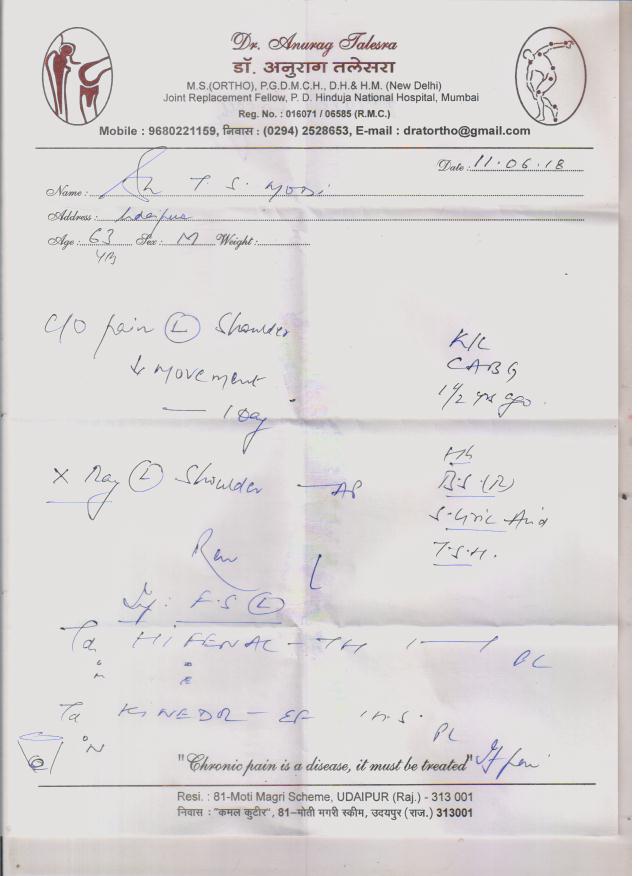 Dr. Anurag Talesra
डॉ. अनुराग तलेसरा
M.S.(ORTHO), P.G.D.M.C.H., D.H.& H.M. (New Delhi)
Joint Replacement Fellow, P. D. Hinduja National Hospital, Mumbai
Reg. No. : 016071 / 06585 (R.M.C.)
Mobile : 9680221159, निवास : (0294) 2528653, E-mail : dratortho@gmail.com
Date : 11.06.18
Name : Sh T. S. Modi
Address : Udaipur
Age : 63 Sex : M Weight :
yrs
C/O pain (L) Shoulder
↓ Movement
— 1 Day
K/C
CABG
1 1/2 yrs ago
X Ray (L) Shoulder — AP
Hb
B.S. (R)
S. Uric Acid
T.S.H.
Rev
Imp: F.S (L)
Ta HIFENAC - TH
Ta KINEDOL - EF 1 H.S.
If pain
"Chronic pain is a disease, it must be treated"
Resi. : 81-Moti Magri Scheme, UDAIPUR (Raj.) - 313 001
निवास : "कमल कुटीर", 81–मोती मगरी स्कीम, उदयपुर (राज.) 313001